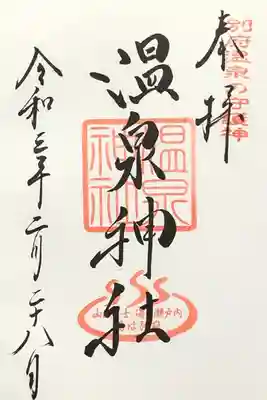 奉拝
別府温泉の守護神
温泉神社
温泉神社
令和三年二月二十八日